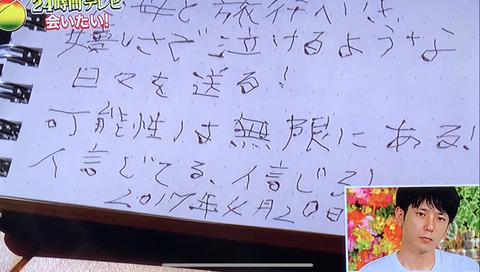 24時間テレビ
会いたい!
母と旅行へいき、
嬉しさで泣けるような
日々を送る!
可能性は無限にある!
信じてる、信じる!
2017年4月20日